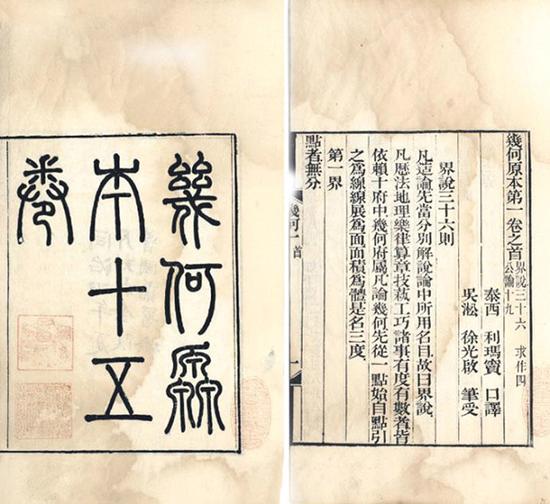 幾何原
本十五
卷
幾何原本第一卷之首 界說三十六 求作四
公論十九
泰西 利瑪竇 口譯
吳淞 徐光啟 筆受
界說三十六則
凡造論先當分別解說論中所用名目故曰界說
凡歷法地理樂律算章技藝工巧諸事有度有數者皆
依賴十府中幾何府屬凡論幾何先從一點始自點引
之爲線線展爲面面積爲體是名三度
第一界
點者無分
幾何一 首
一